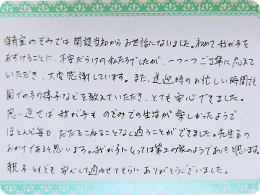 保育室のぞみでは開設当初からお世話になりました。初めて我が子を
あずけることに、不安だらけの私たちでしたが、一つ一つご丁寧に応えて
いただき、大変感謝しています。また、送迎時のお忙しい時間でも
日々の子の様子などを教えていただき、とても安心できました。
思い返せば我が子も のぞみでの生活が 楽しかったようで、
ほとんど毎日、ただをこねることなく通うことができました。先生方の
おかげであると思います。我が子にとっては第二の家のようであったと思います。
親子ともども 安心して通わせてもらい ありがとうございました。